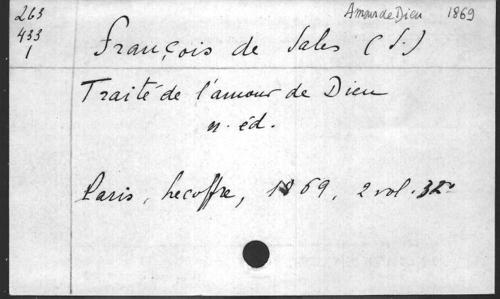 263
433
1
Amour de Dieu 1869
François de Sales (S.)
Traité de l'amour de Dieu
n. éd.
Paris, Lecoffre, 1869, 2 vol. 32°